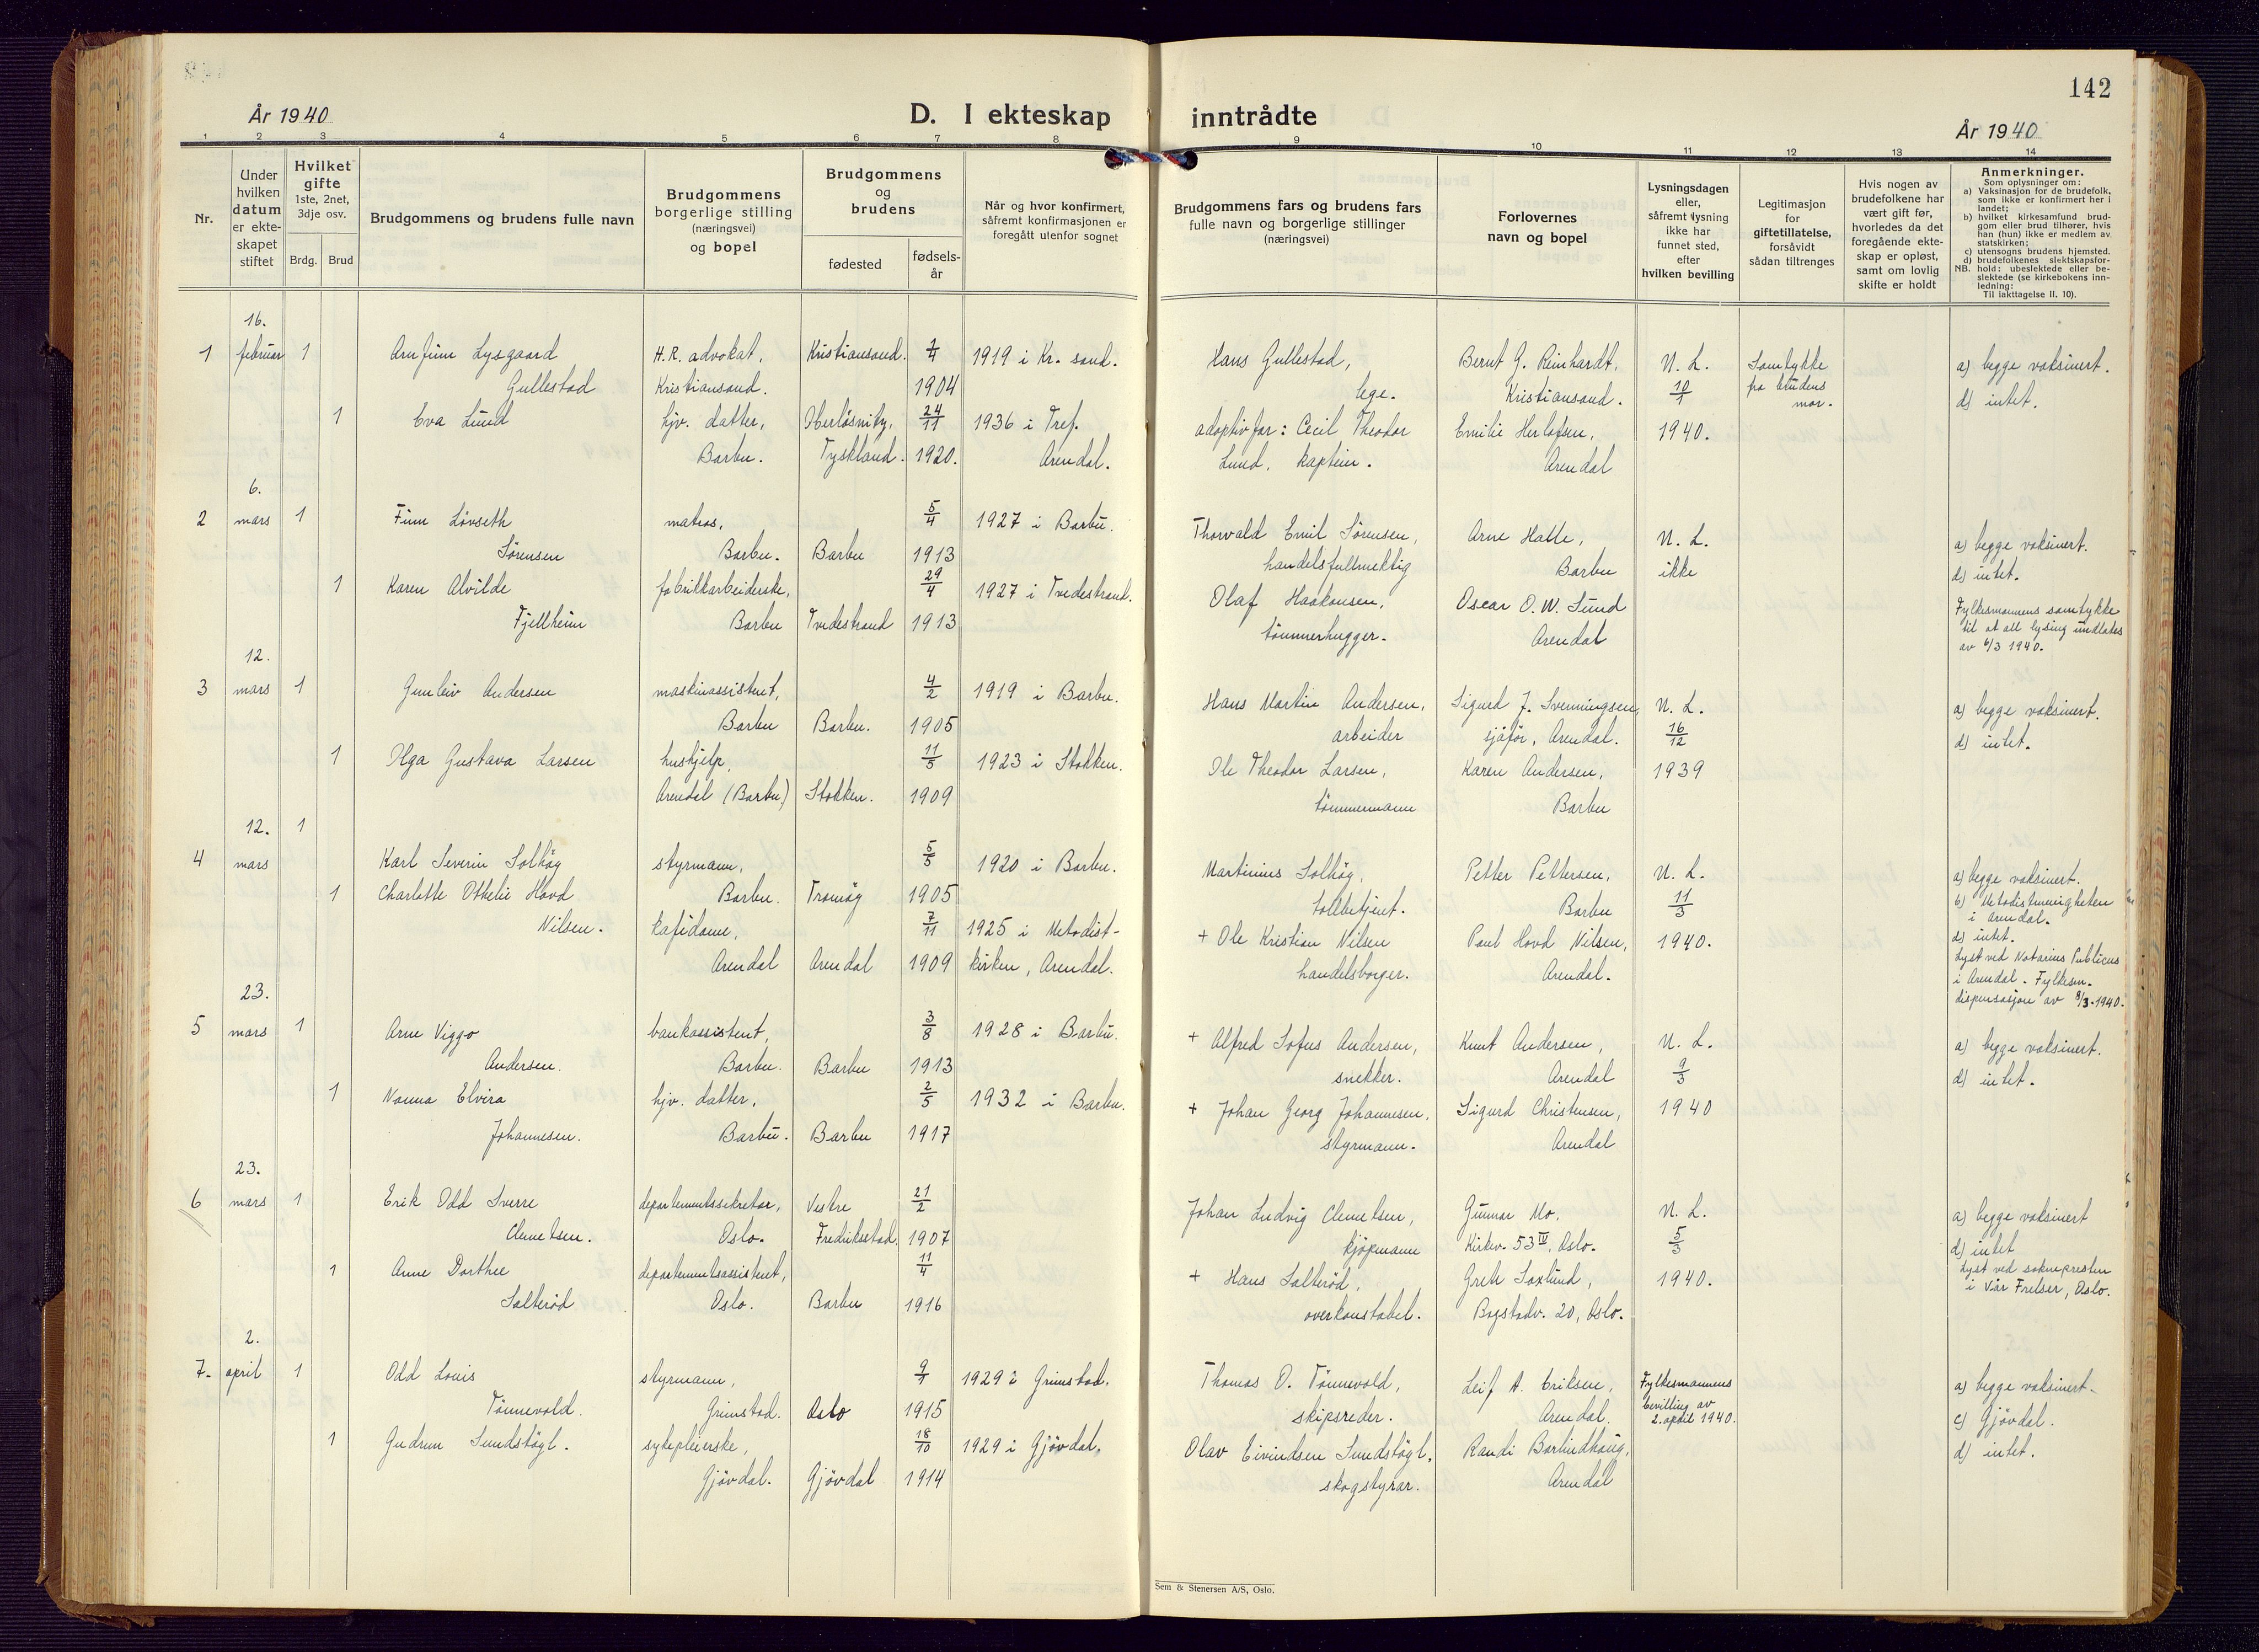 142
År 1940
D. I ekteskap inntrådte
År 1940
1 2 3 4 5 6 7 8 9 10 11 12 13 14
Nr.
Under hvilken datum er ekteskapet stiftet
Hvilket gifte
1ste, 2net, 3dje osv.
Brdg. Brud
Brudgommens og brudens fulle navn
Brudgommens borgerlige stilling (næringsvei) og bopel
Brudgommens og brudens
fødested
fødselsår
Når og hvor konfirmert, såfremt konfirmasjonen er foregått utenfor sognet
Brudgommens fars og brudens fars fulle navn og borgerlige stillinger (næringsvei)
Forlovernes navn og bopel
Lysningsdagen eller, såfremt lysning ikke har funnet sted, efter hvilken bevilling
Legitimasjon for giftetillatelse, forsåvidt sådan tiltrenges
Hvis nogen av brudefolkene har vært gift før, hvorledes da det foregående ekteskap er opløst, samt om lovlig skifte er holdt
Anmerkninger.
Som oplysninger om:
a) Vaksinasjon for de brudefolk, som ikke er konfirmert her i landet;
b) hvilket kirkesamfund brudgom eller brud tilhører, hvis han (hun) ikke er medlem av statskirken;
c) utensogns brudens hjemsted.
d) brudefolkenes slektskapsforhold: ubeslektede eller beslektede (se kirkebokens innledning:
NB.
Til iakttagelse II. 10).
16.
1 februar 1 Arnfinn Lysgaard H.R. advokat, Kristiansand. 2/4 1919 i Kr. sand. Hans Gullestad, Bernt G. Reinhardt, N. L. Samtykke a) begge vaksinert.
Gullestad Kristiansand. 1904 lege. Kristiansand. 10/1 fra brudens mor. d) intet.
1 Eva Lund hjv. datter, 24/11 1936 i Tref. adoptivfar: Cecil Theodor Emilie Herlofsen, 1940.
Barbu. Tyskland. 1920. Arendal. Lund, kaptein. Arendal
6.
2 mars 1 Finn Lövseth matros, 5/4 1927 i Barbu. Thorvald Emil Sörensen, Arne Halle, N. L. a) begge vaksinert.
Sörensen Barbu. Barbu 1913 handelsfullmektig Barbu ikke d) intet.
1 Karen Alvilde fabrikkarbeiderske, 29/4 1927 i Tvedestrand. Olaf Haakonsen, Oscar O. W. Lund Fylkesmannens samtykke
Fjellheim Barbu Tvedestrand 1913 tömmerhugger. Arendal til at all lysing undlates
av 6/3 1940.
12.
3 mars 1 Gunleiv Andersen maskinassistent, 4/2 1919 i Barbu. Hans Martin Andersen, Sigurd J. Svenningsen, N. L. a) begge vaksinert.
Barbu Barbu. 1905 arbeider sjåför, Arendal. 16/12 d) intet.
1 Olga Gustava Larsen hushjelp, 11/5 1923 i Stokken. Ole Theodor Larsen, Karen Andersen, 1939
Arendal (Barbu) Stokken. 1909 tömmermann Barbu
12. 1
4 mars Karl Severin Solhög styrmann, 5/5 1920 i Barbu. Martinius Solhög, Petter Pettersen, N. L. a) begge vaksinert.
1 Charlotte Othelie Hovd Barbu. Tromöy 1905 tollbetjent. Barbu 11/3 b) Metodistmenigheten
i Arendal.
Nilsen. kafédame, 7/11 1925 i Metodist- + Ole Kristian Nilsen Paul Hovd Nilsen, 1940. d) intet.
Arendal Arendal 1909 kirken, Arendal. handelsborger. Arendal. Lyst ved Notarius Publicus
i Arendal. Fylkesm.
dispensasjon av 8/3-1940.
23.
5 mars 1 Arne Viggo bankassistent, 3/8 1928 i Barbu. + Alfred Sofus Andersen, Knut Andersen, N. L. a) begge vaksinert.
Andersen. Barbu. Barbu 1913 snekker. Arendal 9/3 d) intet.
1 Nanna Elvira hjv. datter, 2/5 1932 i Barbu. + Johan Georg Johannesen, Sigurd Christensen, 1940
Johannesen. Barbu. Barbu 1917 styrmann. Arendal
23.
6 mars 1 Erik Odd Sverre departementssekretær, Vestre 21/2 Johan Ludvig Clemetsen, Gunnar Mo, N. L. a) begge vaksinert
Clemetsen. Oslo. Fredrikstad. 1907 kjöpmann Kirkev. 53 IV, Oslo. 5/3 d) intet
1 Anne Dorthee departementsassistent, 11/4 + Hans Salteröd, Grete Saxlund, 1940. Lyst ved soknepresten
Salteröd Oslo. Barbu 1916 overkonstabel. Bogstadv. 20, Oslo. i Vår Frelser, Oslo.
2.
7. april 1 Odd Louis styrmann, 9/1 1929 i Grimstad. Thomas O. Tönnevold, Leif A. Eriksen, Fylkesmannens a) begge vaksinert.
Tönnevold. Grimstad. Oslo 1915 skipsreder. Arendal. bevilling av 2. april 1940. c) Gjövdal.
1 Gudrun Sundstögl. sykepleierske, 18/10 1929 i Gjövdal. Olav Eivindsen Sundstögl, Randi Barlindhaug, d) intet.
Gjövdal. Gjövdal 1914 skogstyrar. Arendal
Sem & Stenersen A/S, Oslo.